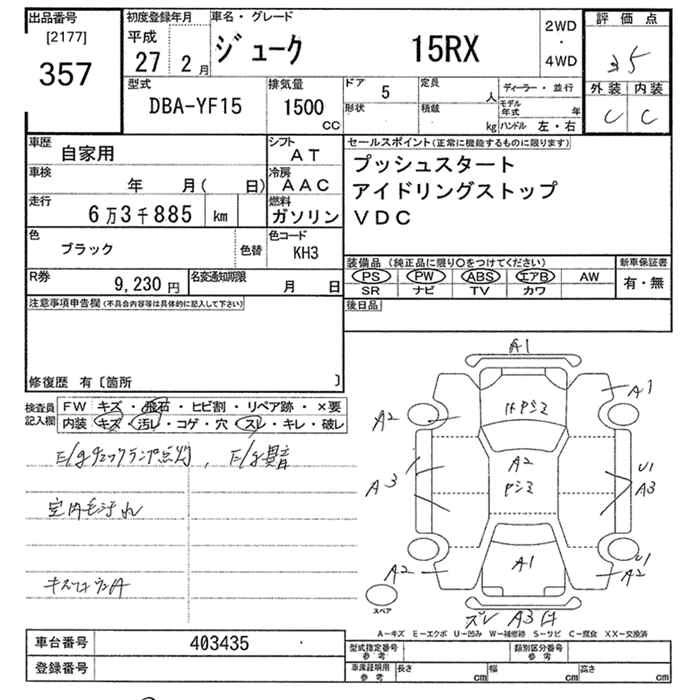 出品番号 初度登録年月 車名・グレード 2WD 評価点
[2177] 平成 ・
357 27 2月 ジューク 15RX 4WD 3.5
型式 排気量 ドア 5 定員 人 ディーラー・並行 外装 内装
DBA-YF15 1500 CC 形状 積載 kg モデル年式 年 C C
ハンドル 左・右
車歴 自家用 シフト AT セールスポイント(正常に機能するものに限ります)
車検 年 月( 日) 冷房 AAC プッシュスタート
走行 6万3千885 km 燃料 ガソリン アイドリングストップ
VDC
色 ブラック 色替 色コード KH3
装備品 (純正品に限り○をつけてください) 新車保証書
R券 9,230円 名変通知期限 月 日 PS PW ABS エアB AW 有・無
SR ナビ TV カワ
注意事項申告欄(不具合内容等は具体的に記入して下さい) 後日品
修復歴 有〔箇所 〕
検査員記入欄 FW キズ・飛石・ヒビ割・リペア跡・×要
内装 キズ・汚レ・コゲ・穴・スレ・キレ・破レ
E/gチェックランプ点灯, E/g異音
室内毛汚れ
A1
A1
A2
A2
A3
U1
A3
A1
A2
U1
A2
スペア
ズレ A3
A-キズ E-エクボ U-凹み W-補修跡 S-サビ C-腐食 XX-交換済
車台番号 403435 型式指定番号 参考 類別区分番号 参考
登録番号 車庫証明用 参考 長さ cm 幅 cm 高さ cm